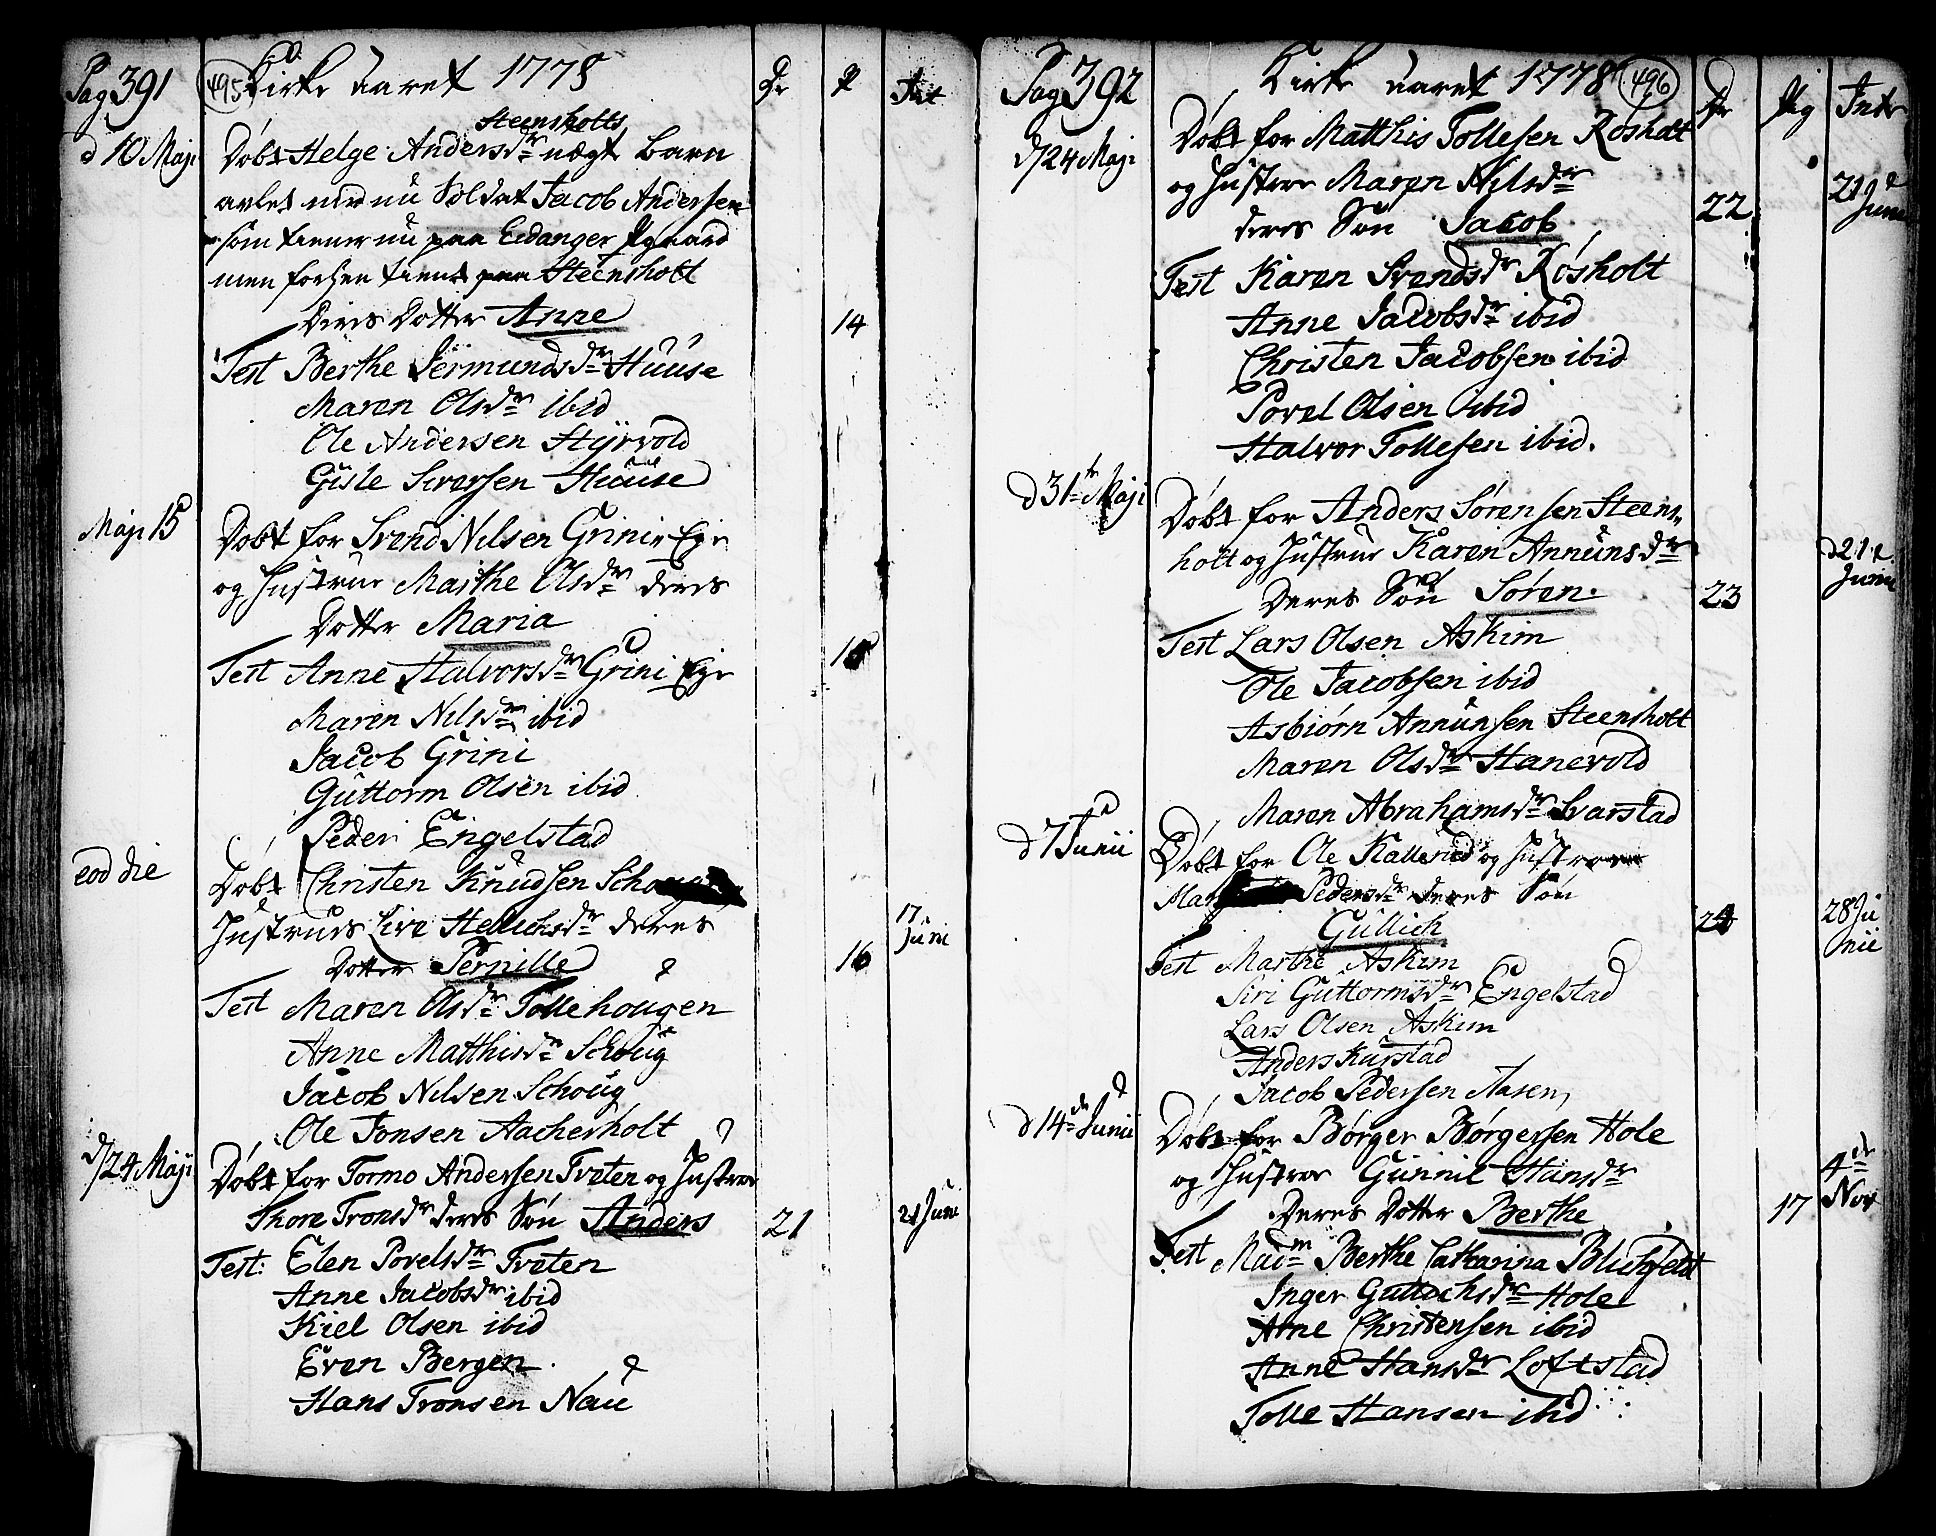 Pag 391
495
Kirke aaret 1778
Dr
P
Int
d 10 Maji
Steensholts
Døbt Helge Andersdr uægt Barn
avlet med nu Soldat Jacob Andersen
som tiener nu paa Eidanger Pgaard
men forhen tient paa Steensholt
Deris Dotter Anne
14
Test Berthe Jermundsdr Huuse
Maren Olsdr ibid
Ole Andersen Styrvold
Gisle Siversen Huuse
Maji 15
Døbt for Svend Nilsen Grinir Eje
og Hustrue Marthe Olsdr deris
Dotter Maria
15
Test Anne Halvorsdr Grini Eje
Maren Nilsdr ibid
Jacob Grini
Guttorm Olsen ibid
Peder Engelstad
eod die
Døbt Christen Knudsen Schoug
Hustrues Live Hellichsdr deres
Dotter Pernille
16
17
Juni
Test Maren Olsdr Tollehougen
Anne Matthisdr Schoug
Jacob Nilsen Schoug
Ole Jonsen Aacherholt
d/24 Maji
Døbt for Tormo Andersen Tveten og Hustrue
Thore Tronsdr deres Søn Anders
21
21 Juni
Test: Elen Povelsdr Tveten
Anne Jacobsdr ibid
Kiel Olsen ibid
Even Bergen
Hans Tronsen Nau
Pag 392
Kirke aaret 1778
496
Dr
Pig
Intr
d/24 Maji
Døbt for Matthis Tollefsen Rosholt
og Hustroe Maren Nilsdr
deres Søn Jacob
22
21 Juni
Test Karen Svendsdr Rosholt
Anne Jacobsdr ibid
Christen Jacobsen ibid
Povel Olsen ibid
Halvor Tollefsen ibid.
d 31te Maji
Døbt for Anders Sørensen Steens-
holt og Hustrue Karen Annunsdr
Deres Søn Søren.
23
d 21
Junii
Test Lars Olsen Askim
Ole Jacobsen ibid
Asbiørn Annunsen Steensholt
Maren Olsdr Hanevold
Maren Abrahamsdr Svarstad
d 7 Junii
Døbt for Ole Kallerud og Hustroe
Mar Pedersdr deres Søn
Gullich
24
28 Ju
nii
Test Marthe Askim
Siri Guttormsdr Engelstad
Lars Olsen Askim
Anders Kurstad
Jacob Pedersen Aasen
d 14de Junii
Døbt for Børger Børgersen Hole
og Hustroe Gunnil Hansdr
Deres Dotter Berthe
17
4de
Nov
Test Madm Berthe Catharina Blichfeldt
Inger Gullichsdr Hole
Arne Christensen ibid
Anne Hansdr Loftstad
Tolle Hansen ibid